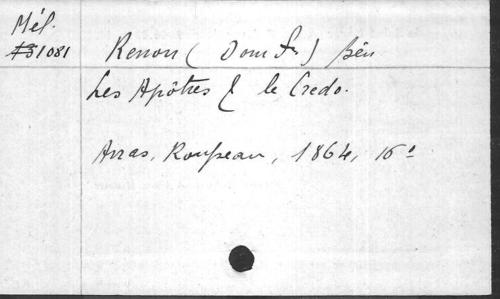 Mél.
31081
Renon (Dom Fr) Bén
Les Apôtres & le Credo.
Arras, Rousseau, 1864, 16°